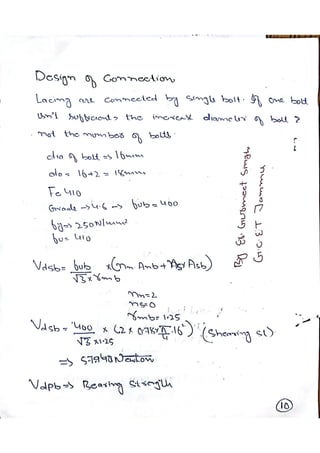 Design of Connection
Lacing are connected by single bolt. If one bolt
isn't sufficient → the increase diameter of bolt ?
not the number of bolts.
dia of bolt ⇒ 16mm
do = 16+2 = 18mm
Fe 410
Grade → 4.6 → fub = 400
fy ⇒ 250 N/mm²
fu = 410
Vdsb = fub / √3 × γmb × (nn Anb + ns Asb)
nn = 2
ns = 0
γmb = 1.25
Vdsb = 400 / √3 × 1.25 × (2 × 0.78 × π/4 × 16²) (Shearing St)
⇒ 57940 Newton
Vdpb ⇒ Bearing Strength
By Er. Gurmeet Singh
G.C.E.T Jammu
10